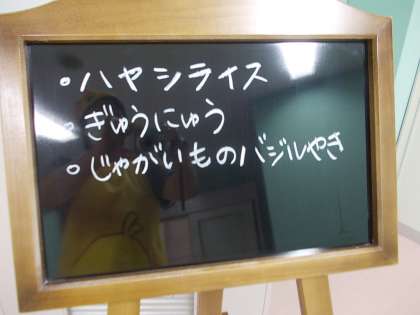 。ハヤシライス
。ぎゅうにゅう
。じゃがいものバジルやき